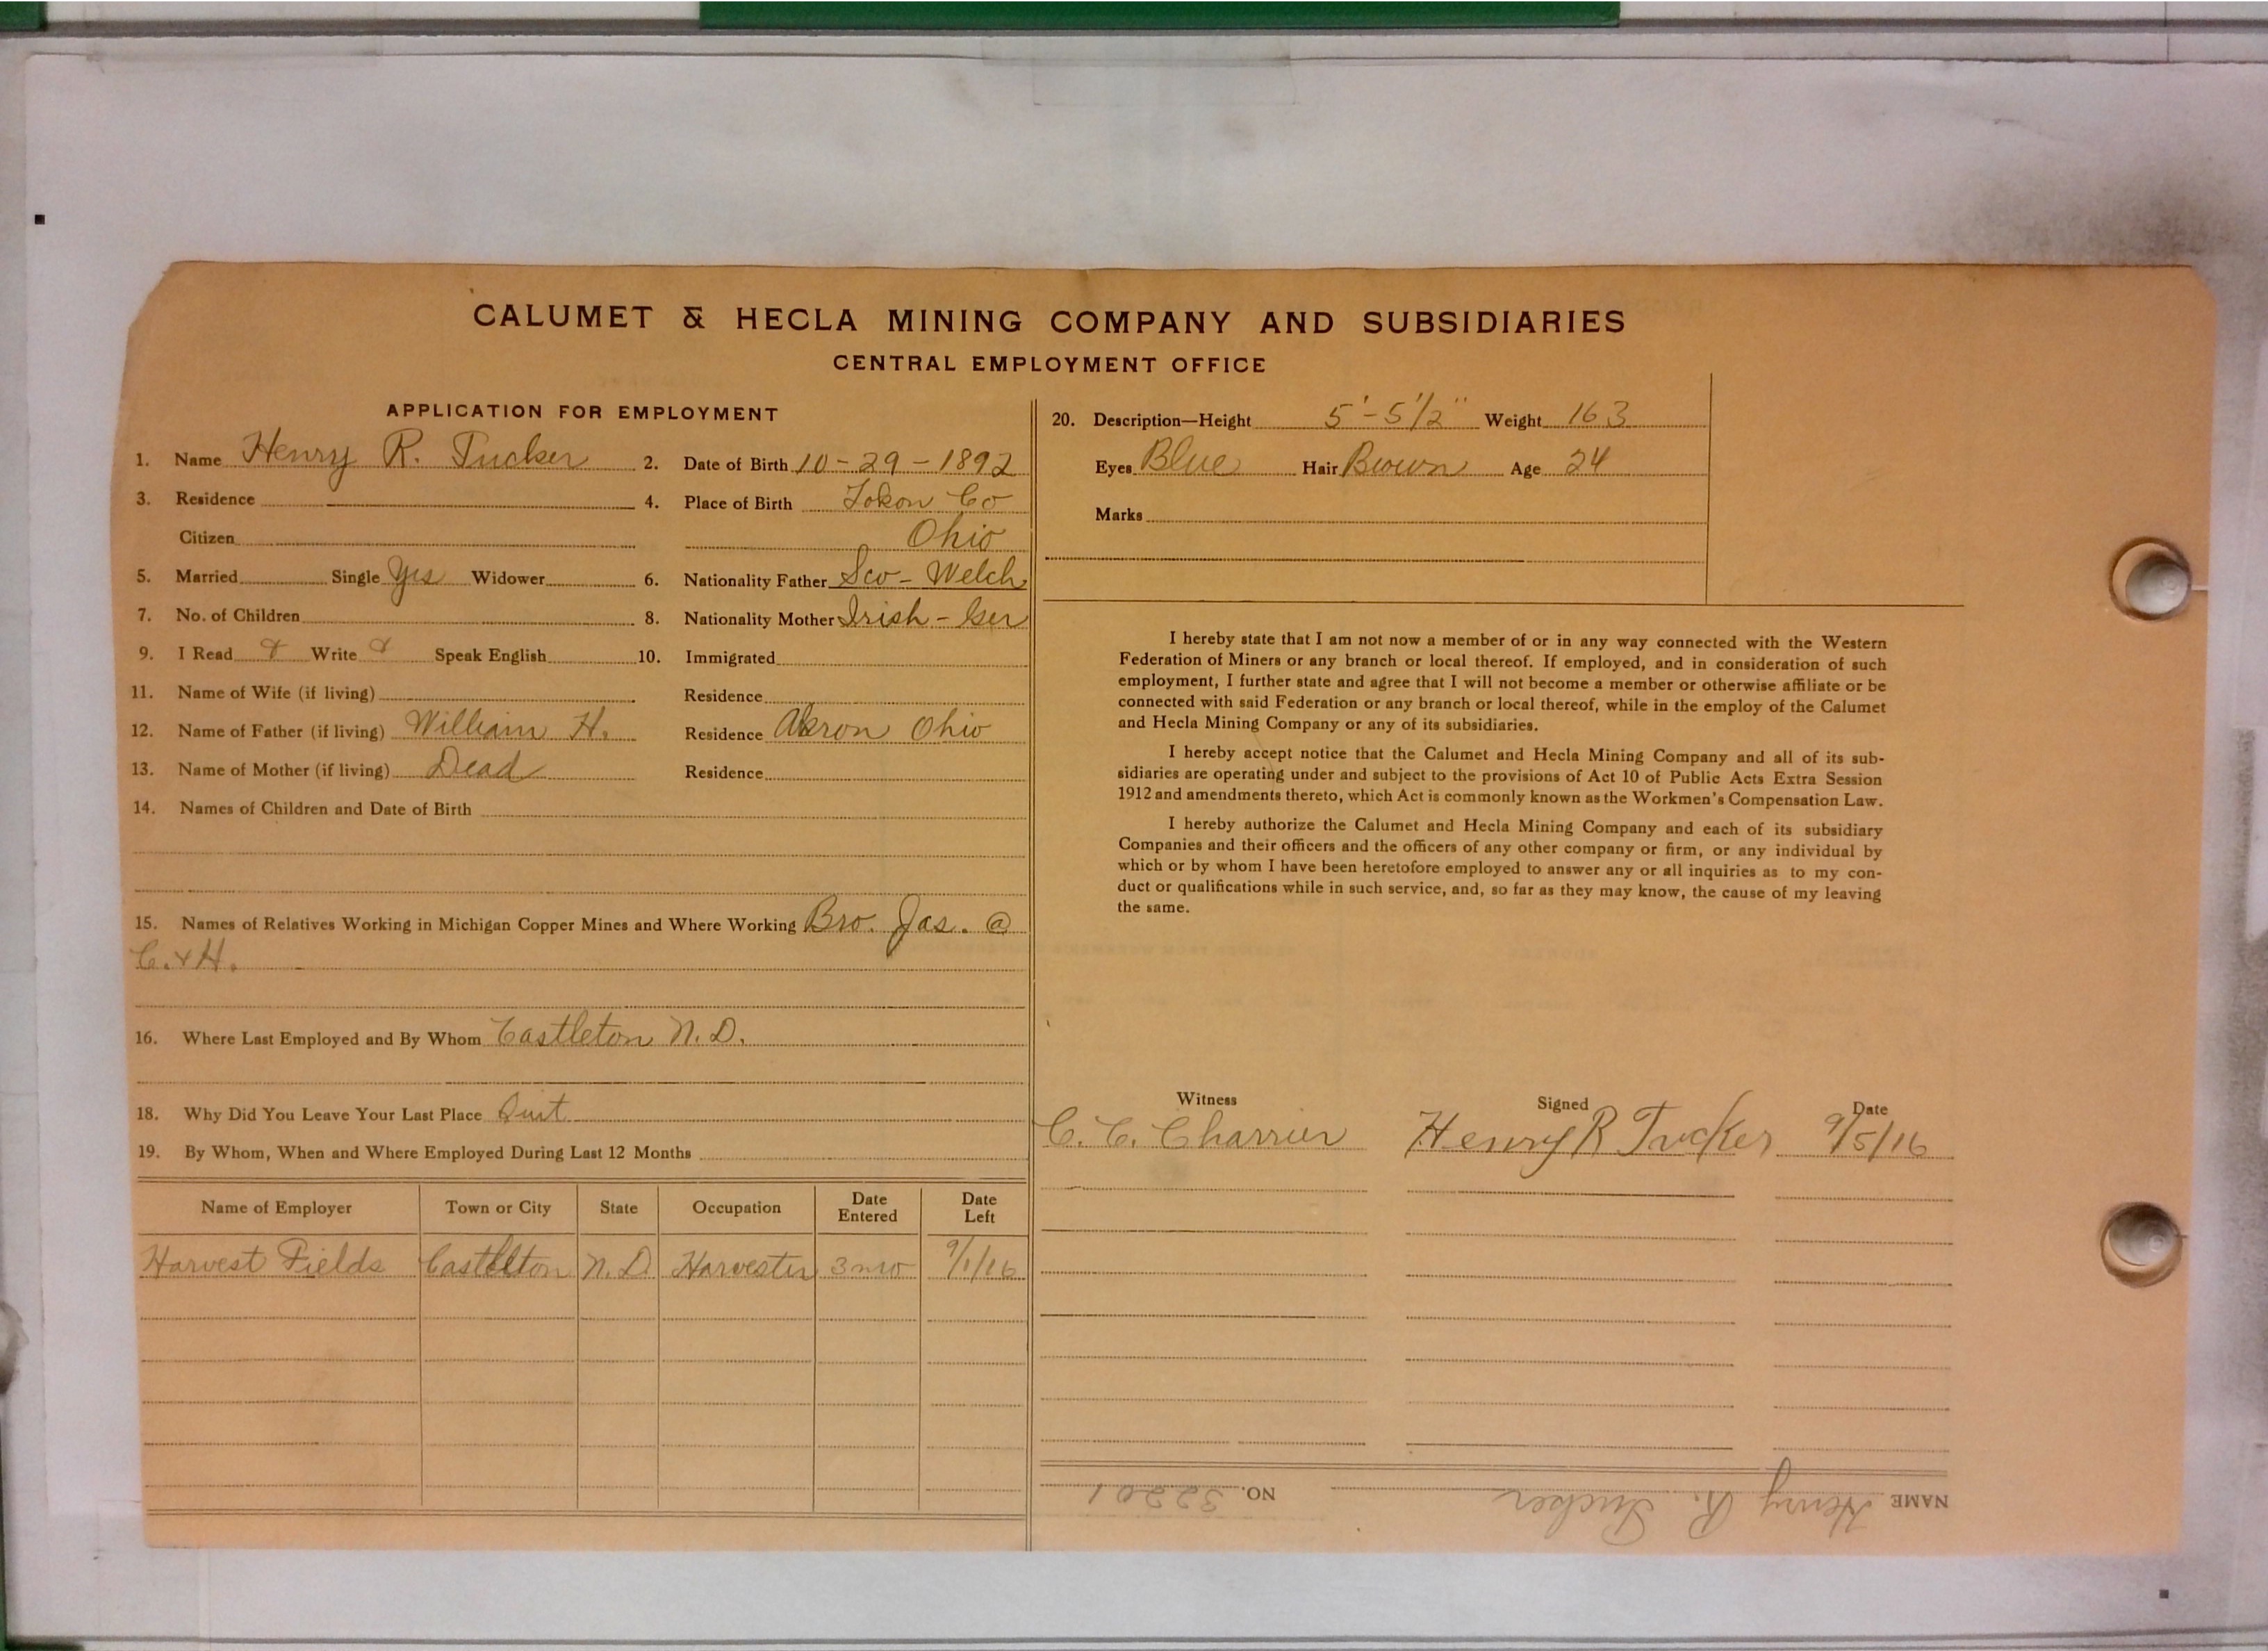 CALUMET & HECLA MINING COMPANY AND SUBSIDIARIES
CENTRAL EMPLOYMENT OFFICE
APPLICATION FOR EMPLOYMENT
1. Name Henry R. Tucker 2. Date of Birth 10-29-1892
3. Residence 4. Place of Birth Co
Citizen Ohio
5. Married Single Yes Widower 6. Nationality Father Sco- Welch
7. No. of Children 8. Nationality Mother Irish- Ger
9. I Read & Write & Speak English 10. Immigrated
11. Name of Wife (if living) Residence
12. Name of Father (if living) William H. Residence Akron Ohio
13. Name of Mother (if living) Dead Residence
14. Names of Children and Date of Birth
15. Names of Relatives Working in Michigan Copper Mines and Where Working Bro. Jas. @
C. & H.
16. Where Last Employed and By Whom Castleton N.D.
18. Why Did You Leave Your Last Place Quit
19. By Whom, When and Where Employed During Last 12 Months
Name of Employer Town or City State Occupation Date Entered Date Left
Harvest Fields Castleton N.D Harvester 3 mo 9/1/16
20. Description—Height 5'-5 1/2" Weight 163
Eyes Blue Hair Brown Age 24
Marks
I hereby state that I am not now a member of or in any way connected with the Western
Federation of Miners or any branch or local thereof. If employed, and in consideration of such
employment, I further state and agree that I will not become a member or otherwise affiliate or be
connected with said Federation or any branch or local thereof, while in the employ of the Calumet
and Hecla Mining Company or any of its subsidiaries.
I hereby accept notice that the Calumet and Hecla Mining Company and all of its sub-
sidiaries are operating under and subject to the provisions of Act 10 of Public Acts Extra Session
1912 and amendments thereto, which Act is commonly known as the Workmen's Compensation Law.
I hereby authorize the Calumet and Hecla Mining Company and each of its subsidiary
Companies and their officers and the officers of any other company or firm, or any individual by
which or by whom I have been heretofore employed to answer any or all inquiries as to my con-
duct or qualifications while in such service, and, so far as they may know, the cause of my leaving
the same.
Witness Signed Date
C. C. Charrier Henry R Tucker 9/5/16
NAME Henry R. Tucker NO. 32201